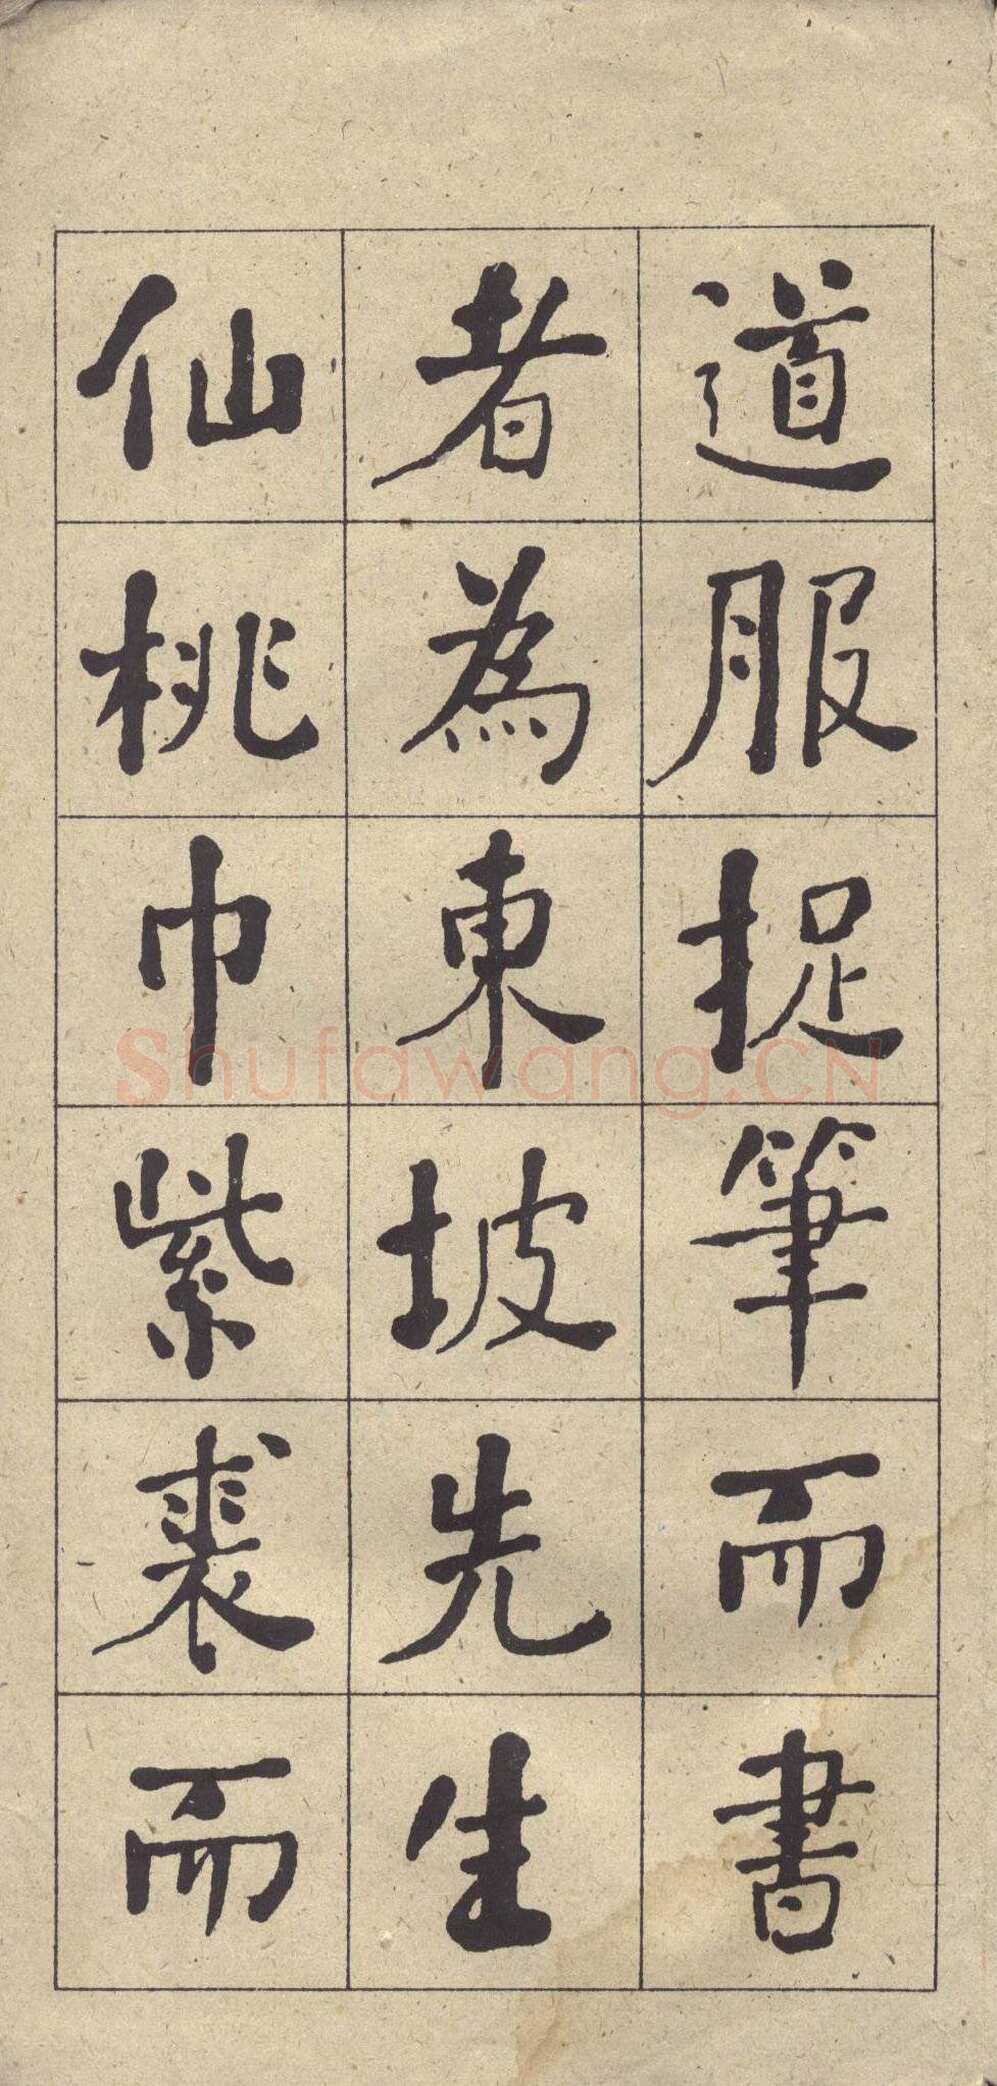 道服捉筆而書
者為東坡先生
仙桃巾紫裘而
Shufawang.CN